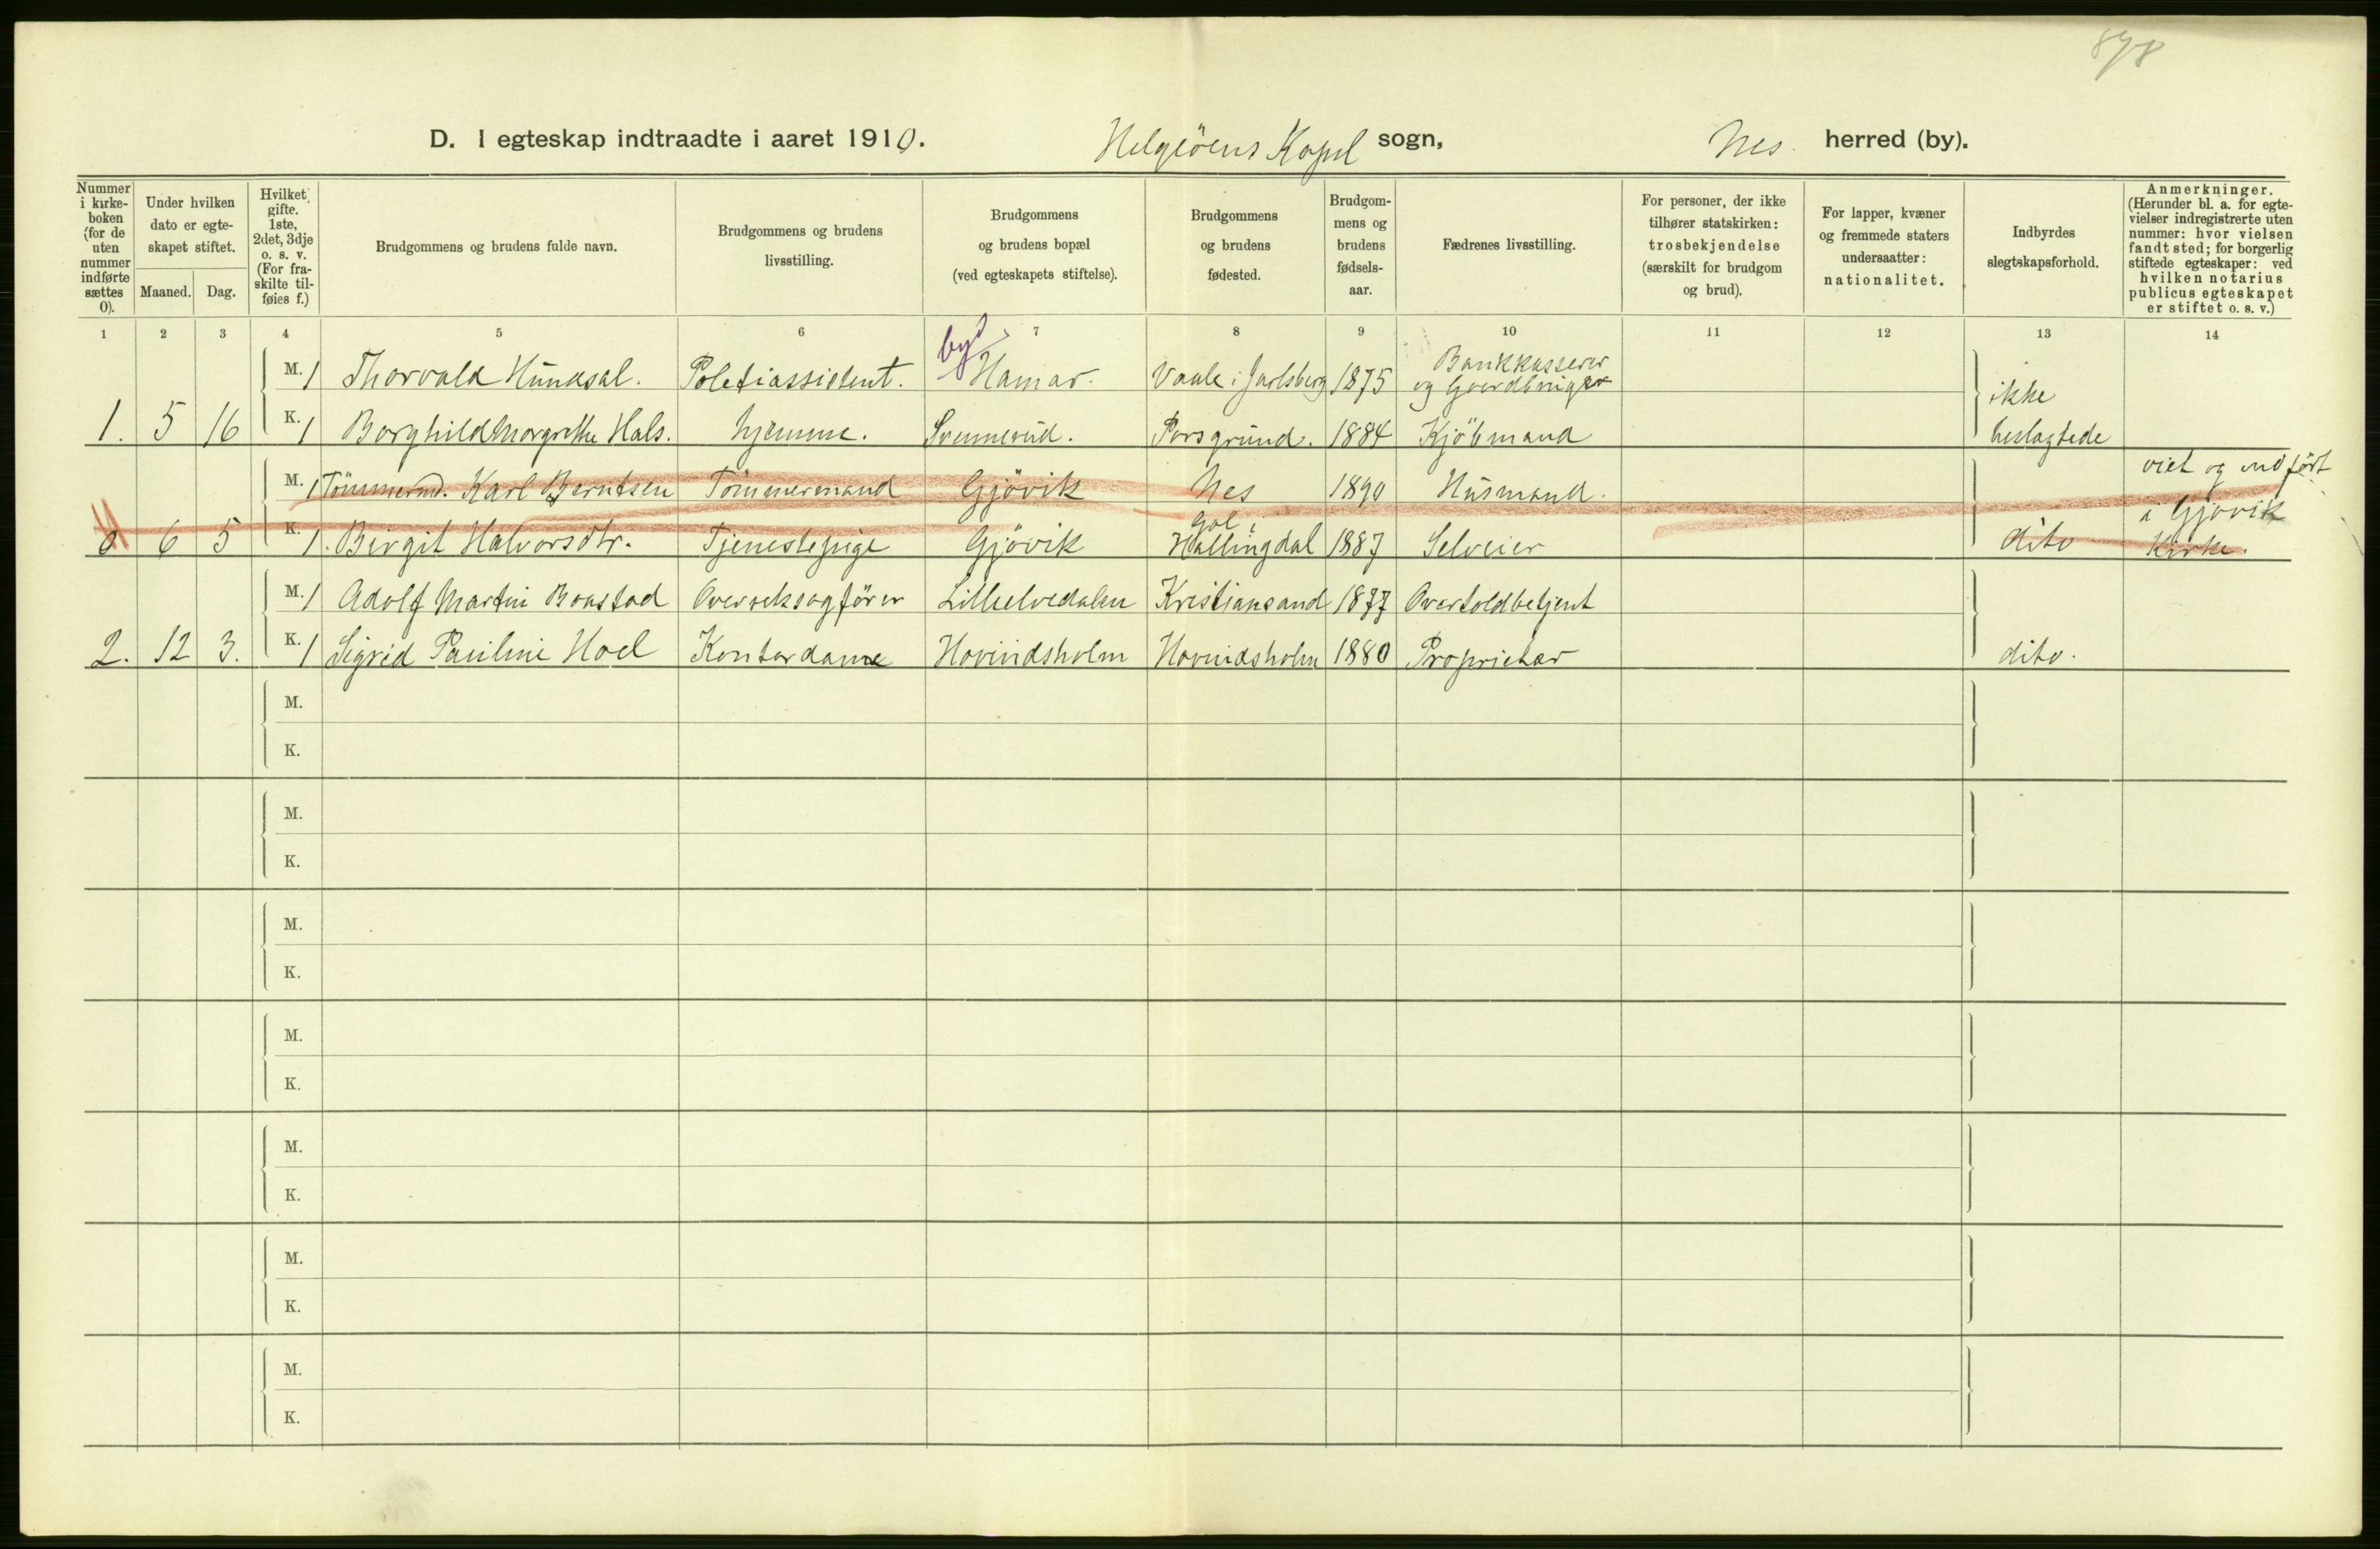 878
D. I egteskap indtraadte i aaret 1910. Helgeöens Kapel sogn, Nes herred (by).
Nummer i kirke-boken (for de uten nummer indførte sættes 0).
Under hvilken dato er egte-skapet stiftet.
Maaned. Dag.
Hvilket gifte. 1ste, 2det, 3dje o. s. v. (For fra-skilte til-føies f.)
Brudgommens og brudens fulde navn.
Brudgommens og brudens livsstilling.
Brudgommens og brudens bopæl (ved egteskapets stiftelse).
Brudgommens og brudens fødested.
Brudgom-mens og brudens fødsels-aar.
Fædrenes livsstilling.
For personer, der ikke tilhører statskirken: trosbekjendelse (særskilt for brudgom og brud).
For lapper, kvæner og fremmede staters undersaatter: nationalitet.
Indbyrdes slegtskapsforhold.
Anmerkninger. (Herunder bl. a. for egte-vielser indregistrerte uten nummer: hvor vielsen fandt sted; for borgerlig stiftede egteskaper: ved hvilken notarius publicus egteskapet er stiftet o. s. v.)
1 2 3 4 5 6 7 8 9 10 11 12 13 14
M. 1 Thorvald Hunksal. Politiassistent. by Hamar. Vaale i Jarlsberg 1875 Bankkasserer og Gaardbruger
1. 5 16 K. 1 Borghild Margrethe Hals. hjemme. Svennerud. Porsgrund. 1884 Kjöbmand ikke beslagtede
M. 1 Tömmermd. Karl Berntsen Tömmermand Gjövik Nes 1890 Husmand. viet og indfört
0 6 5 K. 1. Birgit Halvorsdtr. Tjenestepige Gjövik Gol i Hallingdal 1887 Selveier dito i Gjövik Kirke.
M. 1 Adolf Martin Boastad Overretssagförer Lillelvedalen Kristiansand 1877 Overtoldbetjent
2. 12 3. K. 1 Sigrid Pauline Hoel Kontordame Hovindsholm Hovindsholm 1880 Proprietær dito.
M.
K.
M.
K.
M.
K.
M.
K.
M.
K.
M.
K.
M.
K.